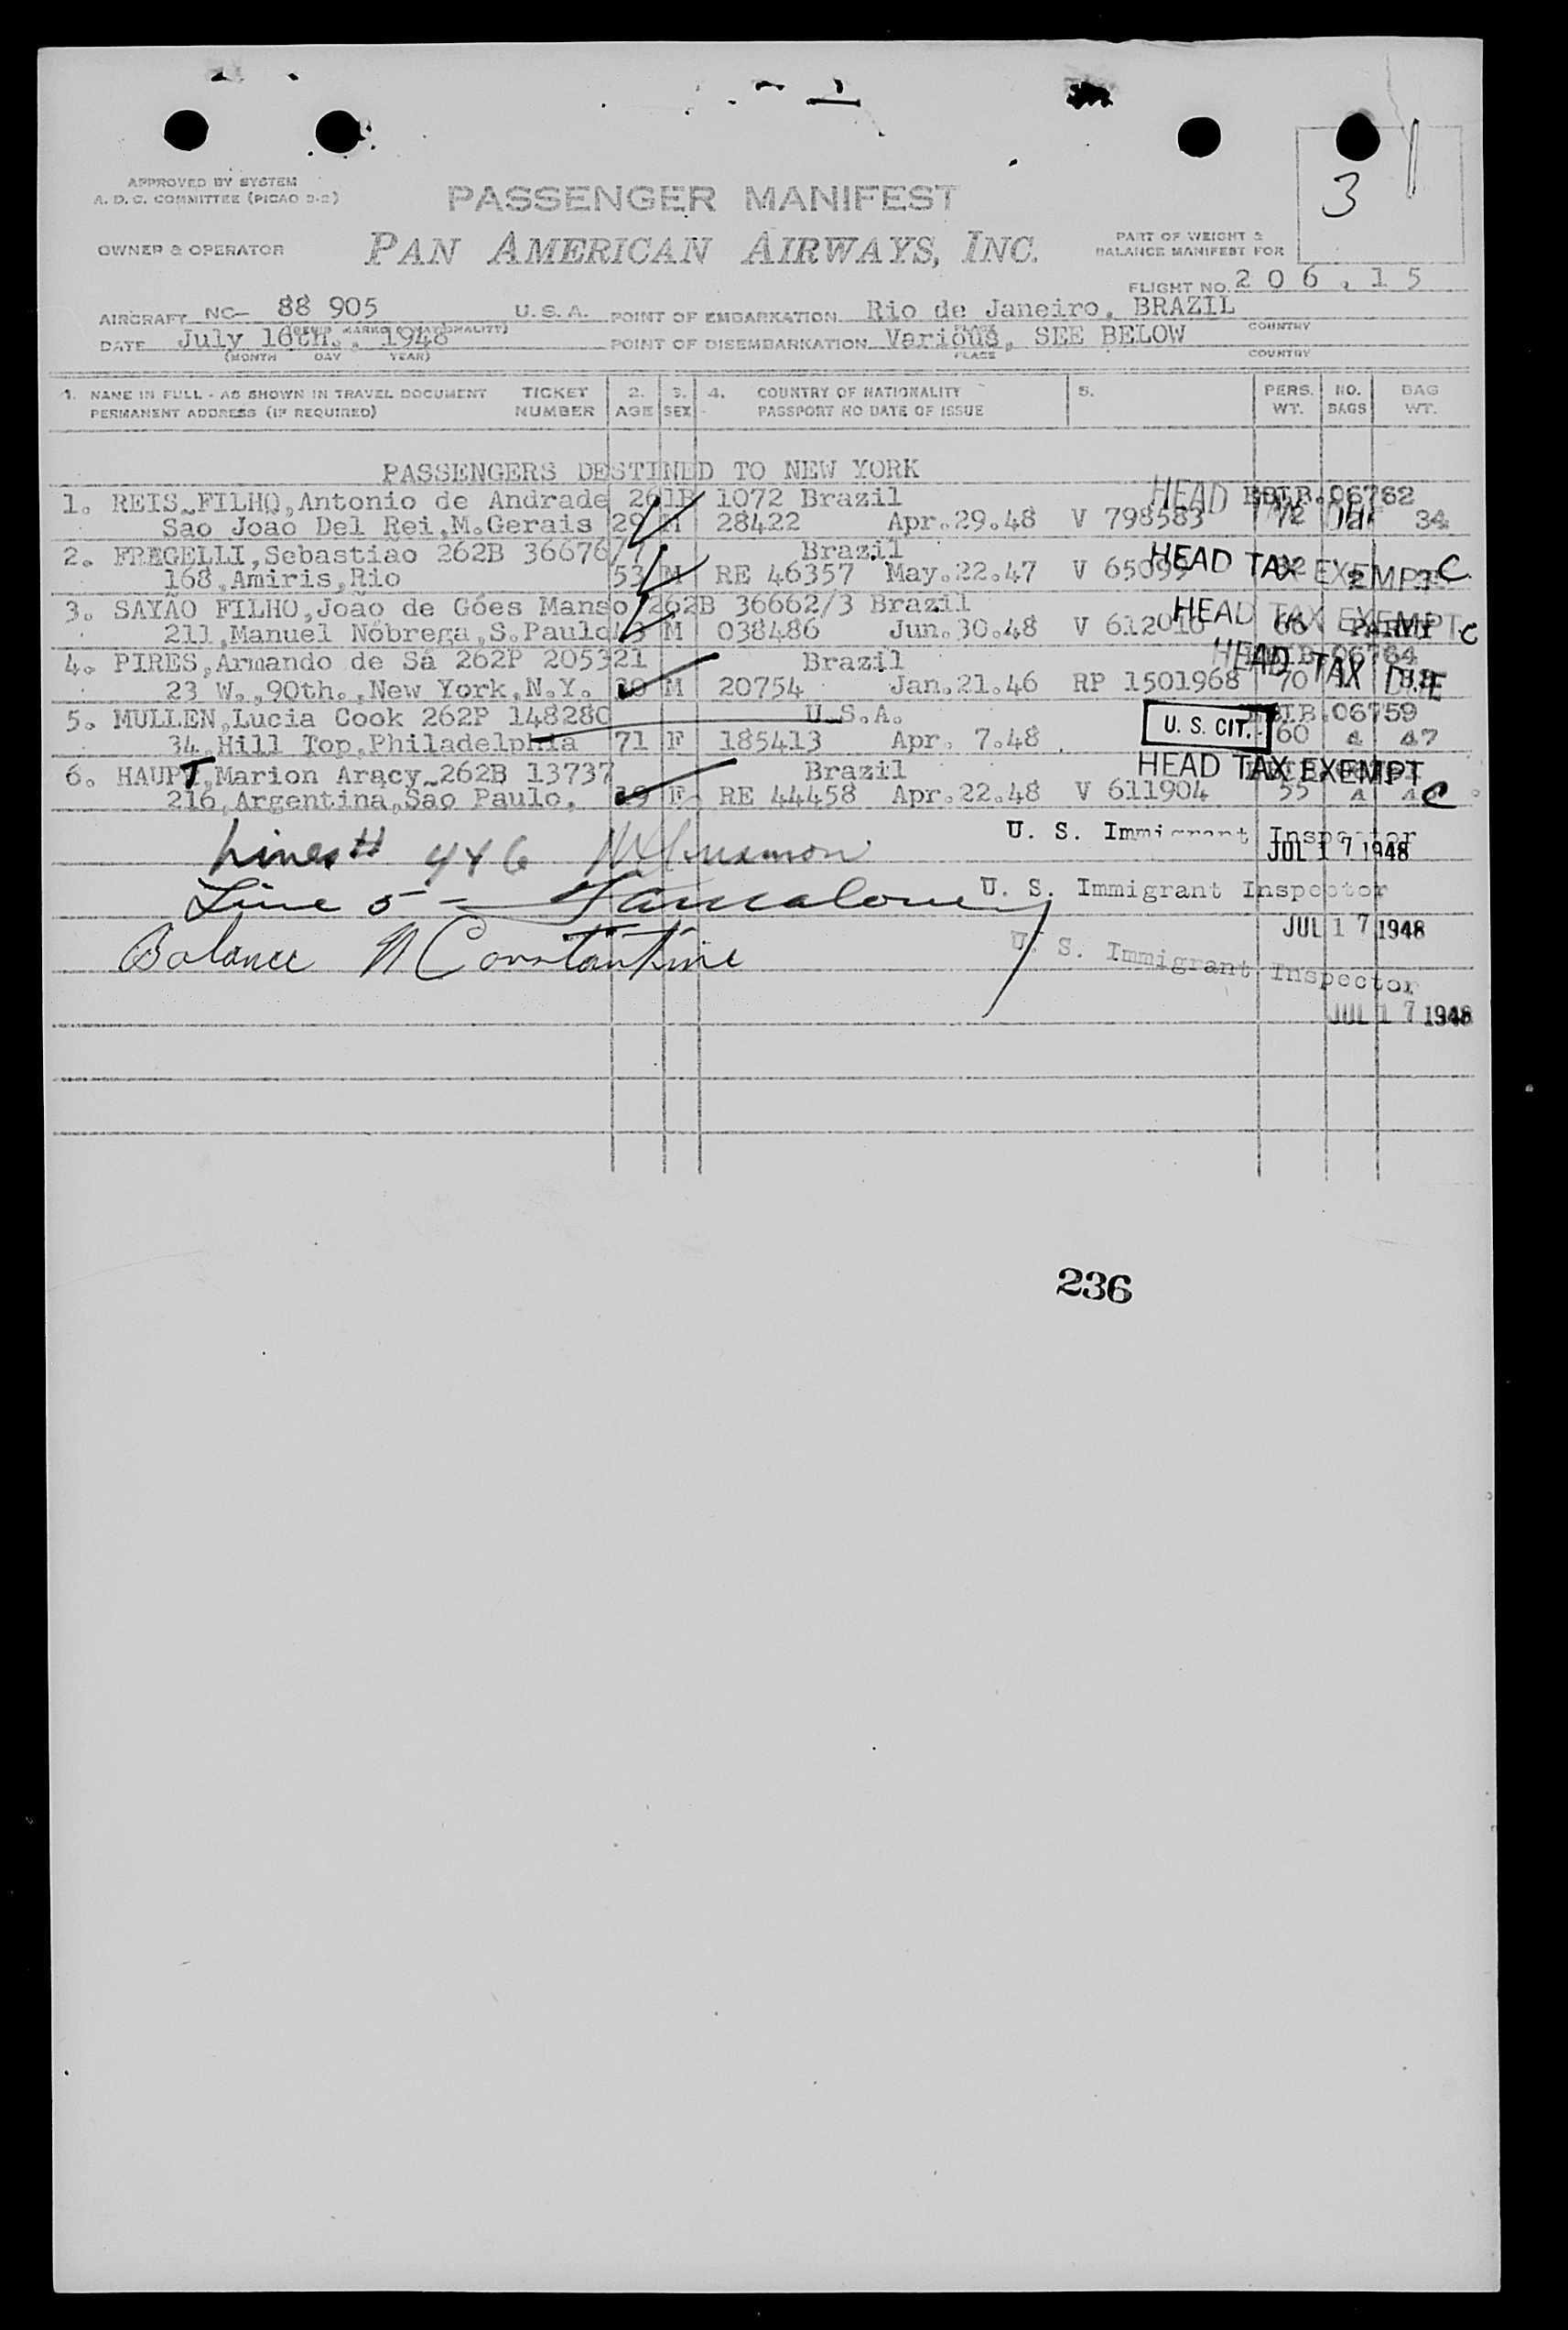 3
APPROVED BY SYSTEM
A. D. C. COMMITTEE (PICAO 9-2)
PASSENGER MANIFEST
OWNER & OPERATOR
PAN AMERICAN AIRWAYS, INC.
PART OF WEIGHT &
BALANCE MANIFEST FOR
FLIGHT NO. 206.15
AIRCRAFT NC- 88 905 U.S.A. POINT OF EMBARKATION Rio de Janeiro, BRAZIL
PLACE COUNTRY
DATE July 16th., 1948 POINT OF DISEMBARKATION Various, SEE BELOW
(MONTH DAY YEAR) PLACE COUNTRY
1. NAME IN FULL - AS SHOWN IN TRAVEL DOCUMENT TICKET 2. 3. 4. COUNTRY OF NATIONALITY 5. PERS. NO. BAG
PERMANENT ADDRESS (IF REQUIRED) NUMBER AGE SEX PASSPORT NO DATE OF ISSUE WT. BAGS WT.
PASSENGERS DESTINED TO NEW YORK
1. REIS FILHO, Antonio de Andrade 261B 1072 Brazil HEAD 06762
Sao Joao Del Rei, M.Gerais 29 M 28422 Apr.29.48 V 798583 72 34
2. FREGELLI, Sebastião 262B 36676/7 Brazil HEAD TAX EXEMPT C
168, Amiris, Rio 53 M RE 46357 May.22.47 V
3. SAYÃO FILHO, João de Góes Manso 262B 36662/3 Brazil HEAD TAX EXEMPT C
211, Manuel Nóbrega, S.Paulo 43 M 038486 Jun.30.48 V 612010
4. PIRES, Armando de Sá 262P 205321 Brazil HEAD TAX DUE 06764
23 W., 90th., New York, N.Y. M 20754 Jan.21.46 RP 1501968 70
5. MULLEN, Lucia Cook 262P 148280 U.S.A. U. S. CIT. 06759
34, Hill Top, Philadelphia 71 F 185413 Apr. 7.48 60 47
6. HAUPT, Marion Aracy 262B 13737 Brazil HEAD TAX EXEMPT
216, Argentina, Sao Paulo, F RE 44458 Apr.22.48 V 611904 55 C
Lines # 4 & 6 U. S. Immigrant Inspector
JUL 17 1948
Line 5 - U. S. Immigrant Inspector
JUL 17 1948
Balance N Constantine U. S. Immigrant Inspector
JUL 17 1948
236